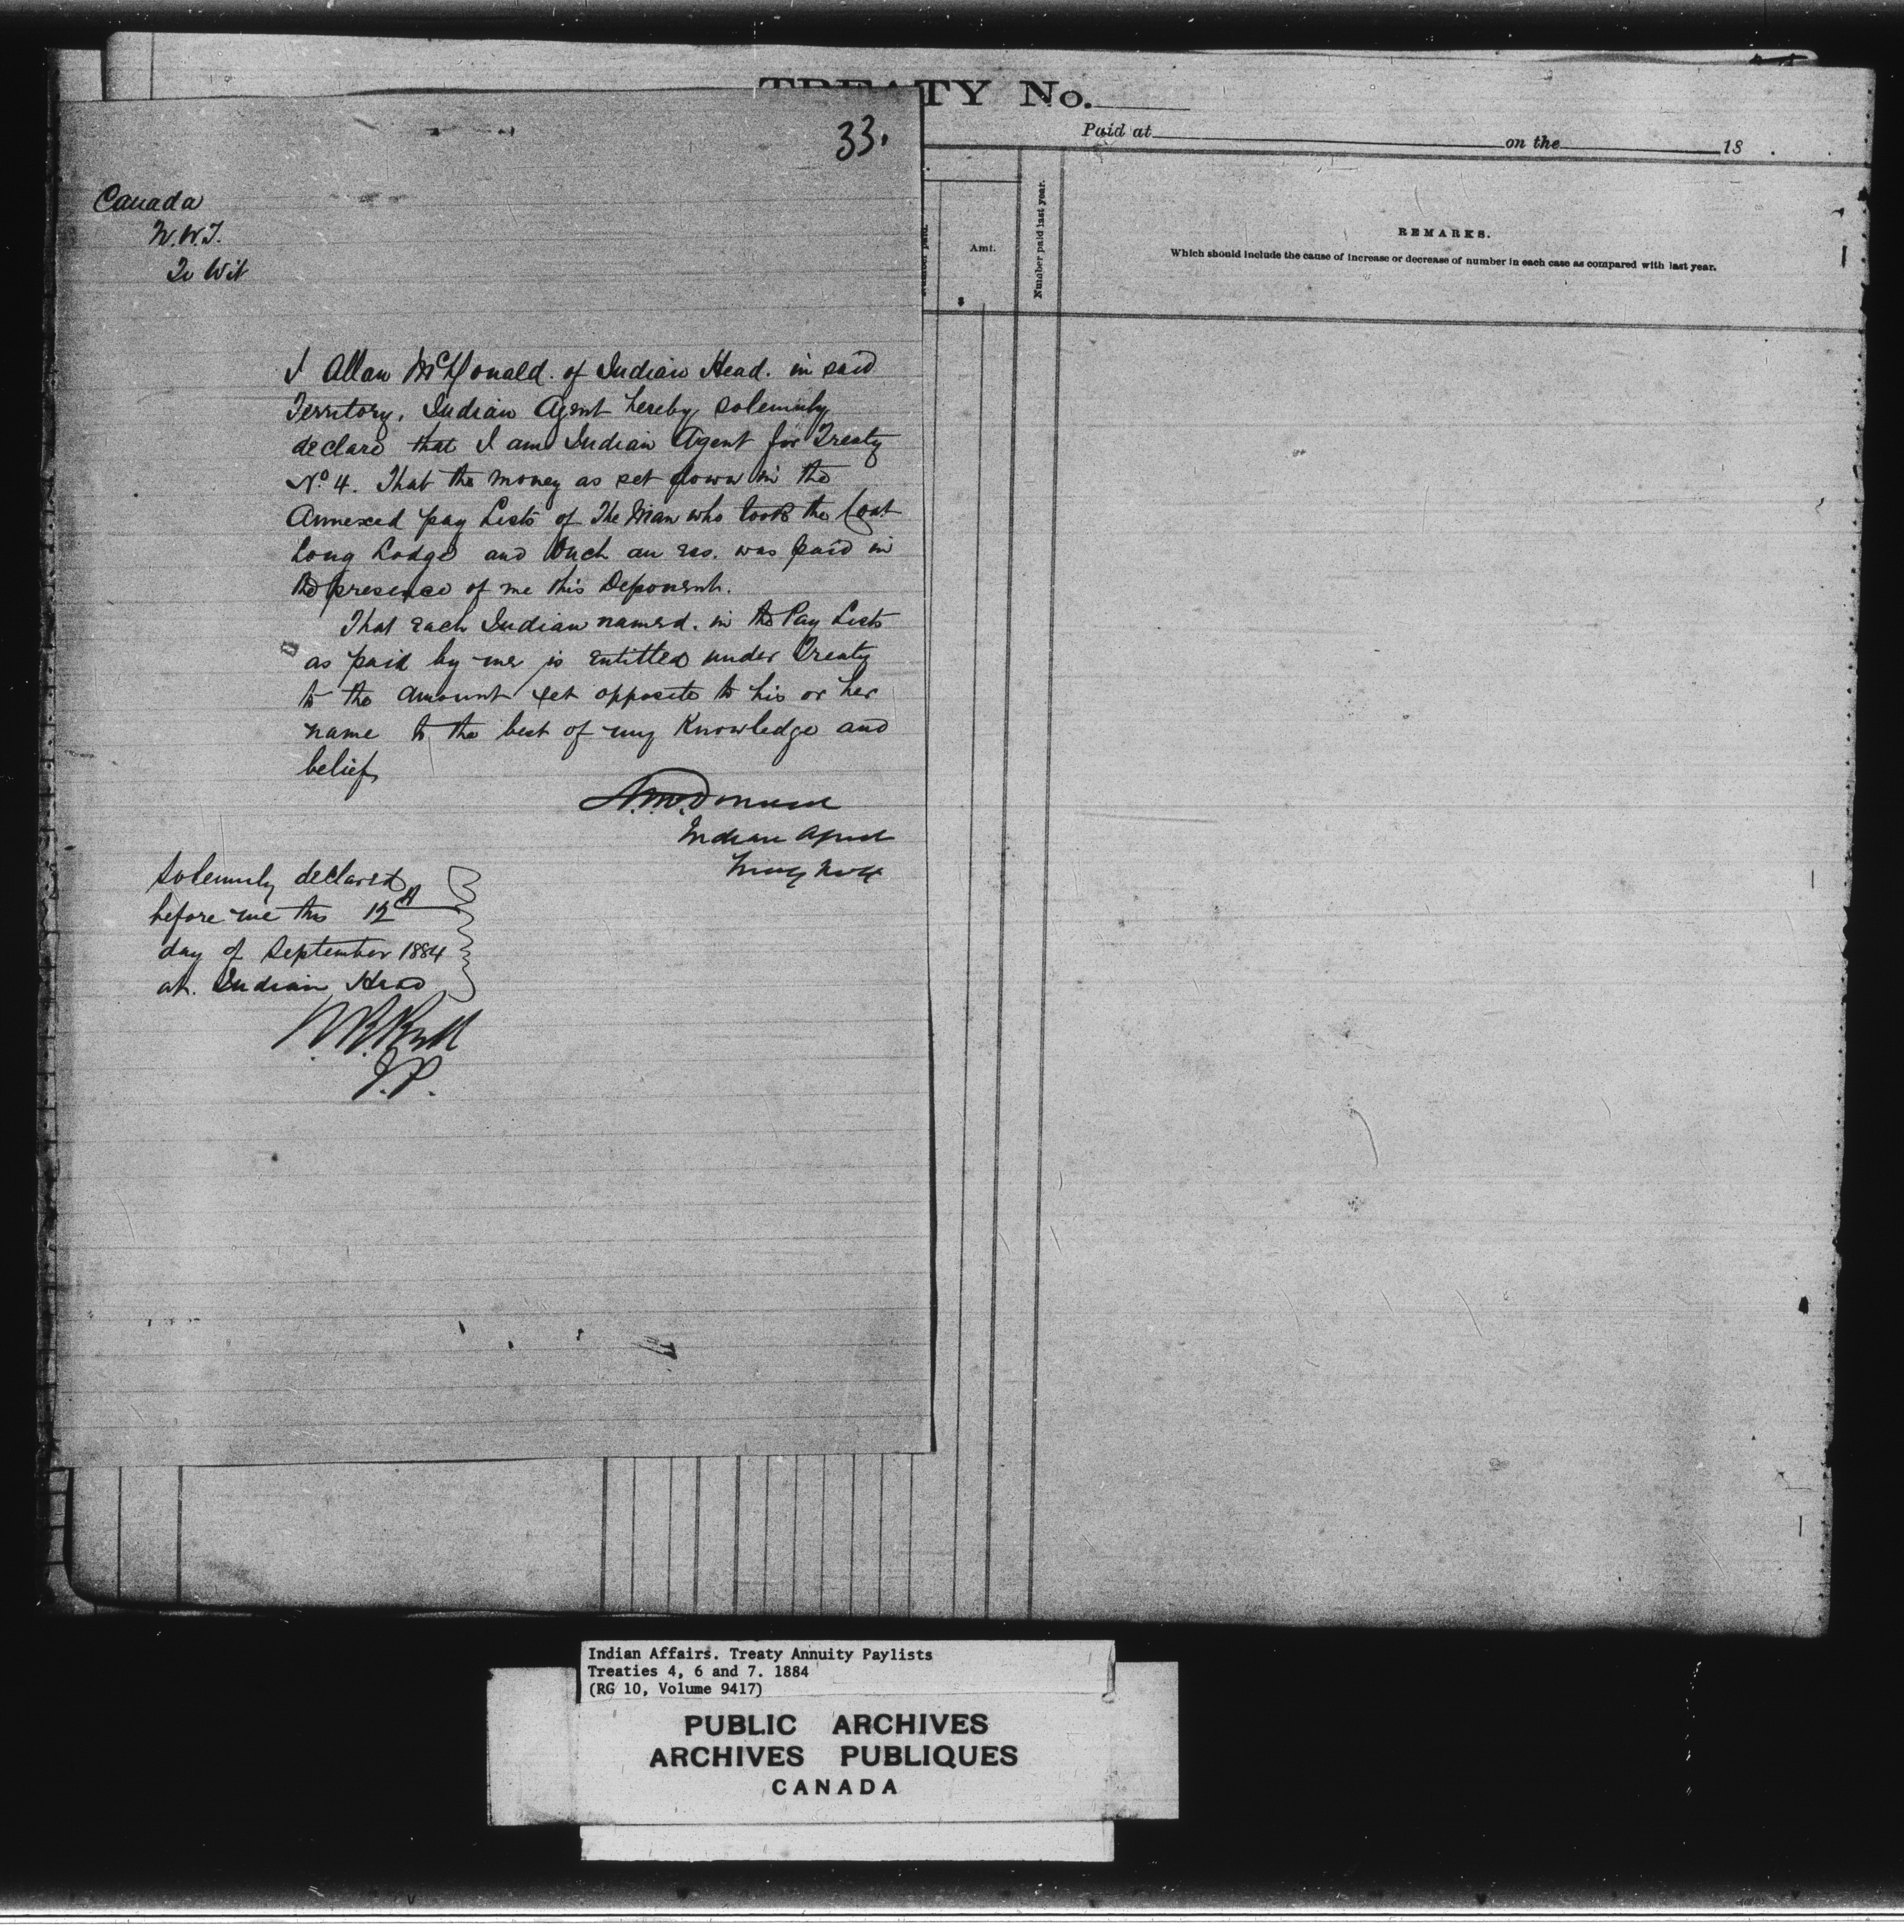 TREATY No.
Paid at on the 18
33.
Canada
N.W.T.
To Wit
Amt.
$
Number paid last year.
REMARKS.
Which should include the cause of increase or decrease of number in each case as compared with last year.
I Allan McDonald. of Indian Head. in said
Territory, Indian Agent hereby solemnly
declare that I am Indian Agent for Treaty
No 4. That the money as set down in the
Annexed pay Lists of The Man who took the Coat
Long Lodge and was paid in
the presence of me this Deponent.
That each Indian named. in the Pay Lists
as paid by me is entitled under Treaty
to the amount set opposite to his or her
name to the best of my Knowledge and
belief
A. McDonald
Indian Agent
Treaty No 4
Solemnly declared
before me this 12th
day of September 1884
at. Indian Head
J.P.
Indian Affairs. Treaty Annuity Paylists
Treaties 4, 6 and 7. 1884
(RG 10, Volume 9417)
PUBLIC ARCHIVES
ARCHIVES PUBLIQUES
CANADA